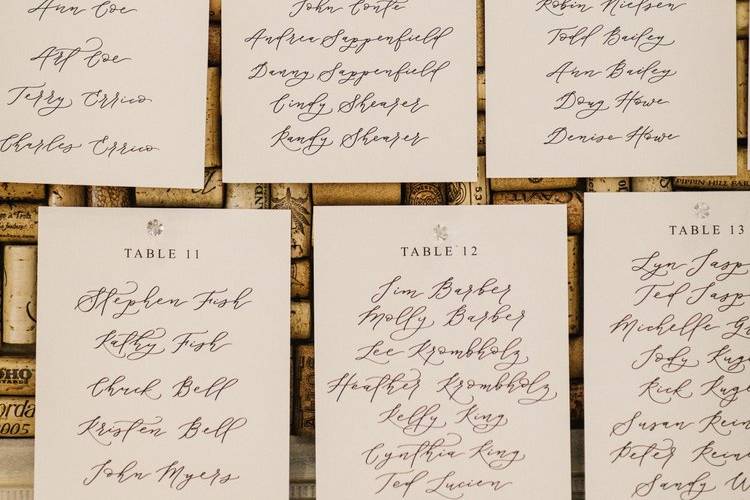 Ann Coe
Art Coe
Terry Errico
Charles Errico
John Conte
Andrea Sappenfield
Danny Sappenfield
Cindy Shearer
Randy Shearer
Robin Nielsen
Todd Bailey
Ann Bailey
Doug Howe
Denise Howe
TABLE 11
Stephen Fish
Kathy Fish
Chuck Bell
Kristen Bell
John Myers
TABLE 12
Jim Barber
Molly Barber
Lee Krombholz
Heather Krombholz
Kelly King
Cynthia King
Ted Lucien
TABLE 13
Lyn Jasp
Ted Jasp
Michelle
Jody Rug
Rick Rug
Susan Rein
Peter Reine
Sandy W
PIPPIN HILL FAR
2005